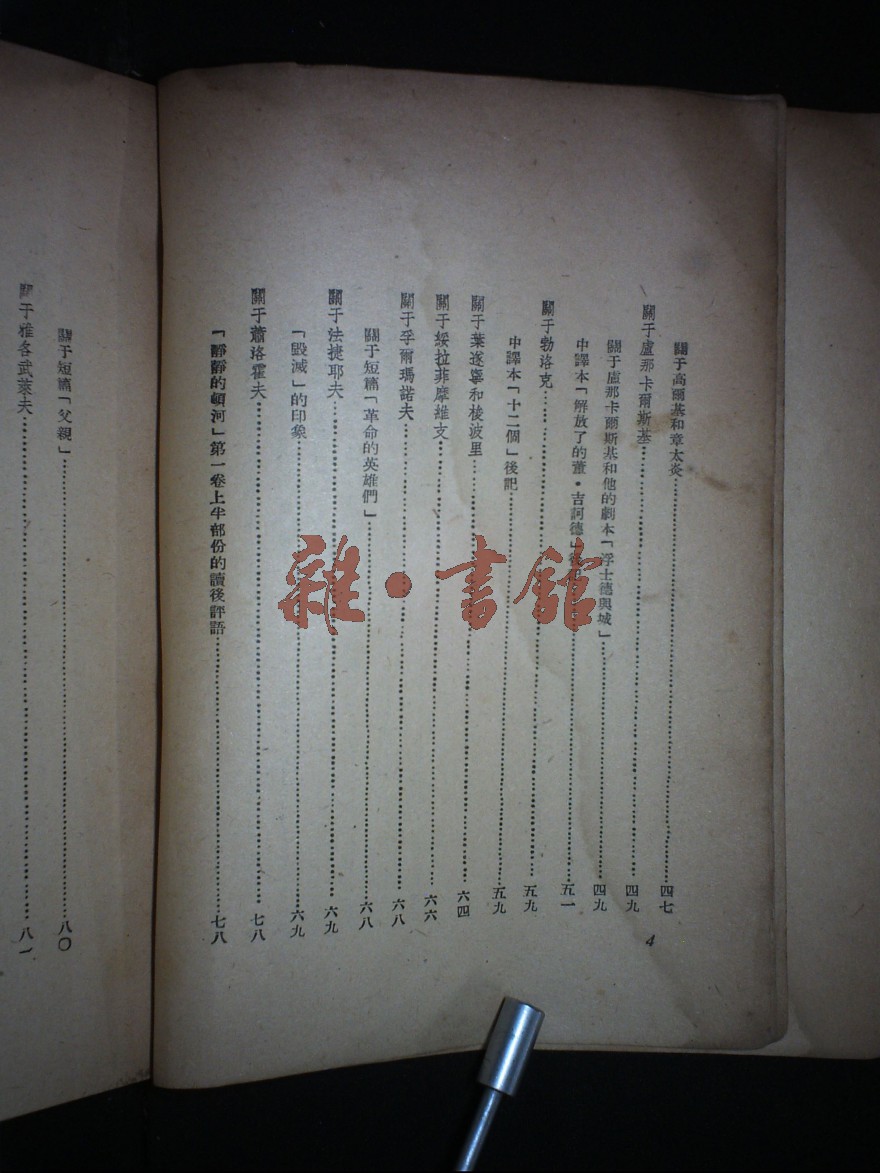 關于高爾基和章太炎……四七
關于盧那卡爾斯基……四九
關于盧那卡爾斯基和他的劇本「浮士德與城」……四九
中譯本「解放了的董·吉訶德」……五一
關于勃洛克……五九
中譯本「十二個」後記……五九
關于葉遂寧和梭波里……六四
關于綏拉菲摩維支……六六
關于孚爾瑪諾夫……六八
關于短篇「革命的英雄們」……六八
關于法捷耶夫……六九
「毀滅」的印象……六九
關于蕭洛霍夫……七八
「靜靜的頓河」第一卷上半部份的讀後評語……七八
4
關于短篇「父親」……八〇
關于雅各武萊夫……八一
雜·書館